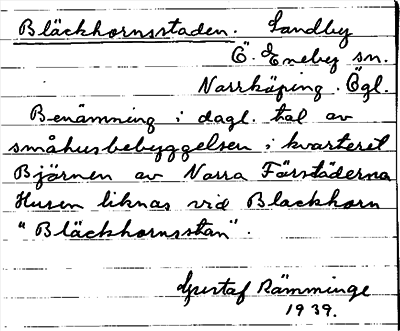 Bläckhornsstaden. Landby
Ö. Eneby sn.
Norrköping. Ögl.
Benämning i dagl. tal av
småhusbebyggelsen i kvarteret
Björnen av Norra Förstäderna
Husen liknas vid Blackhorn
"Bläckhornsstan".
Gustaf Rämminge
1939.